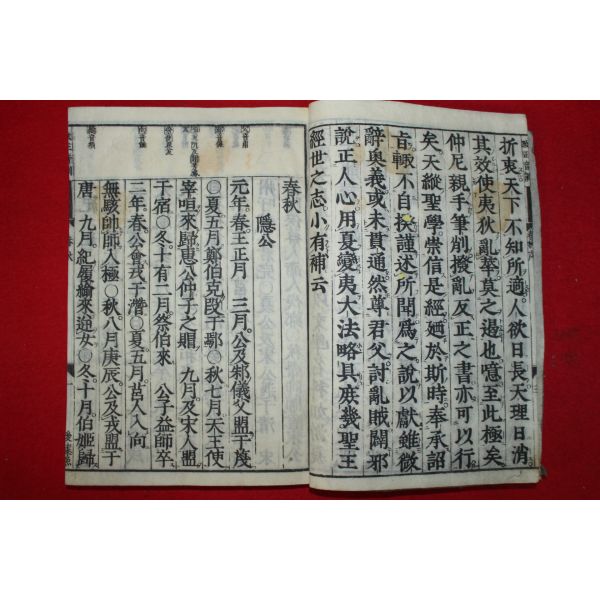 折衷天下不知所適。人欲日長。天理日消。
其效使夷狄亂華莫之遏也。噫至此極矣。
仲尼親手筆削撥亂反正之書亦可以行
矣。天縱聖學崇信是經。廼於斯時奉承詔
旨輒不自揆。謹述所聞爲之說以獻。雖微
辭奧義或未貫通。然尊君父討亂賊闢邪
說正人心用夏變夷大法略具。庶幾聖王
經世之志小有補云
春秋
隱公
元年春王正月 三月公及邾儀父盟于蔑
○夏五月鄭伯克段于鄢○秋七月天王使
宰咺來歸惠公仲子之賵 九月及宋人盟
于宿○冬十有二月祭伯來 公子益師卒
二年春。公會戎于潛○夏五月莒人入向
無駭帥師入極○秋八月庚辰。公及戎盟于
唐 九月紀履繻來逆女○冬十月伯姬歸
後藤點